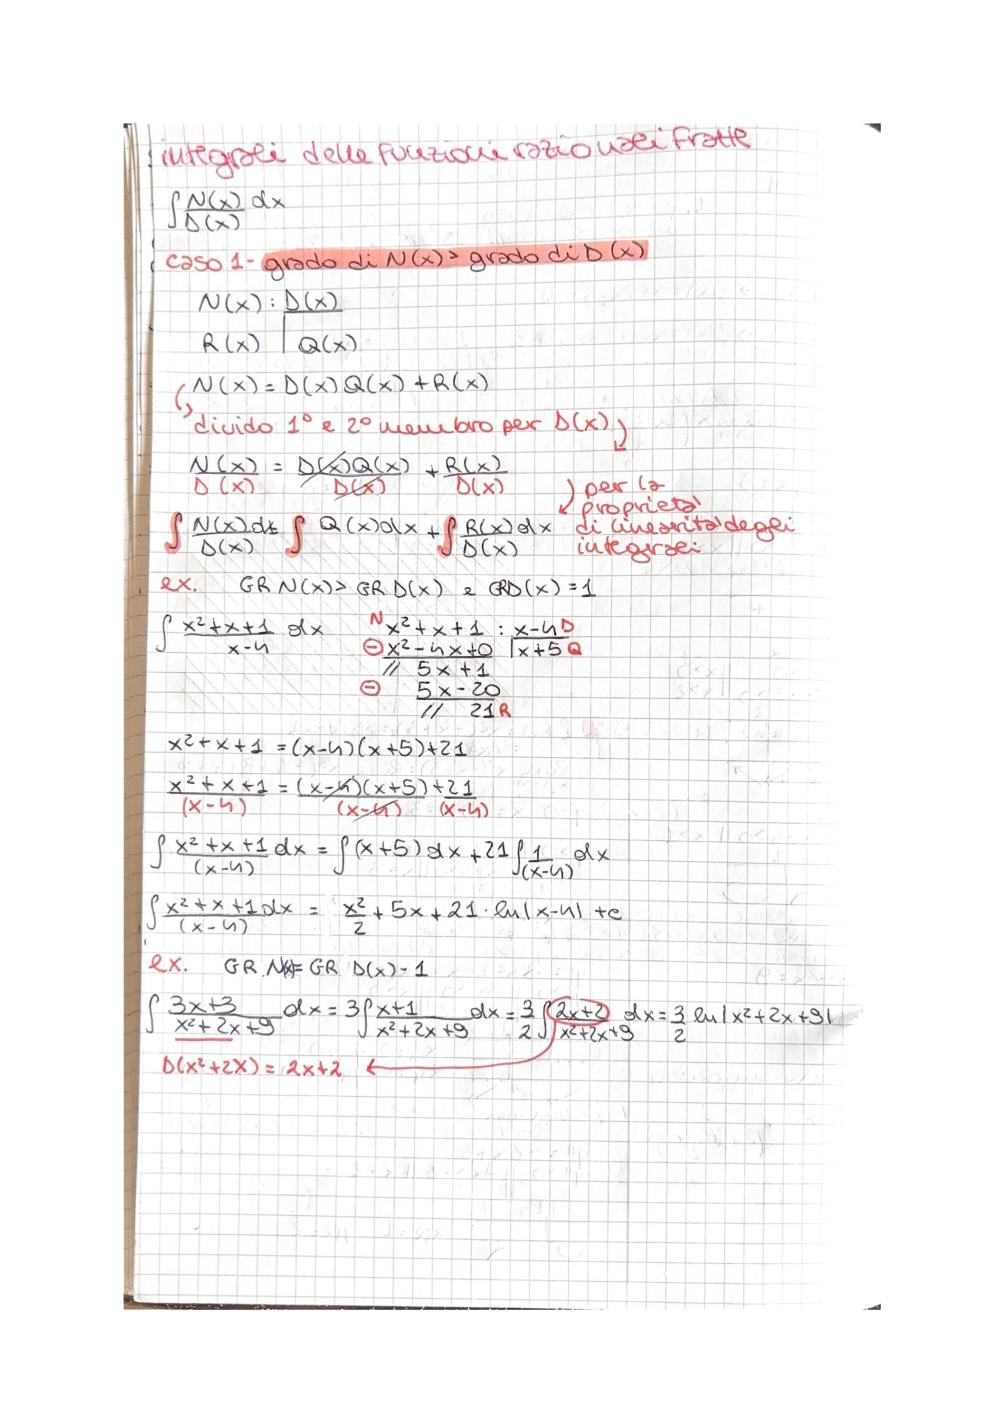 integrali delle funzioni razionali fratte
∫ N(x)/D(x) dx
caso 1- grado di N(x) > grado di D(x)
N(x) : D(x)
R(x) | Q(x)
N(x) = D(x) Q(x) + R(x)
divido 1° e 2° membro per D(x)
N(x)/D(x) = D(x)Q(x)/D(x) + R(x)/D(x)
per la
proprietà
∫ N(x)/D(x) dx = ∫ Q(x)dx + ∫ R(x)/D(x) dx di linearità degli
integrali
ex. GR N(x) > GR D(x) e GRD(x) = 1
∫ x²+x+1/x-4 dx N x²+x+1 : x-4 D
⊖ x²-4x+0 | x+5 Q
// 5x+1
⊖ 5x-20
// 21 R
x²+x+1 = (x-4)(x+5)+21
x²+x+1/(x-4) = (x-4)(x+5)/(x-4) + 21/(x-4)
∫ x²+x+1/(x-4) dx = ∫ (x+5) dx + 21 ∫ 1/(x-4) dx
∫ x²+x+1/(x-4) dx = x²/2 + 5x + 21 · ln|x-4| + c
ex. GR N(x) = GR D(x) - 1
∫ 3x+3/x²+2x+9 dx = 3 ∫ x+1/x²+2x+9 dx = 3/2 ∫ 2x+2/x²+2x+9 dx = 3/2 ln|x²+2x+9|
D(x²+2x) = 2x+2 ←